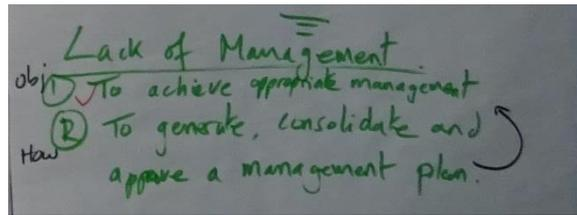 Lack of Management.
Obj ① To achieve appropriate management
② To generate, consolidate and
How approve a management plan.